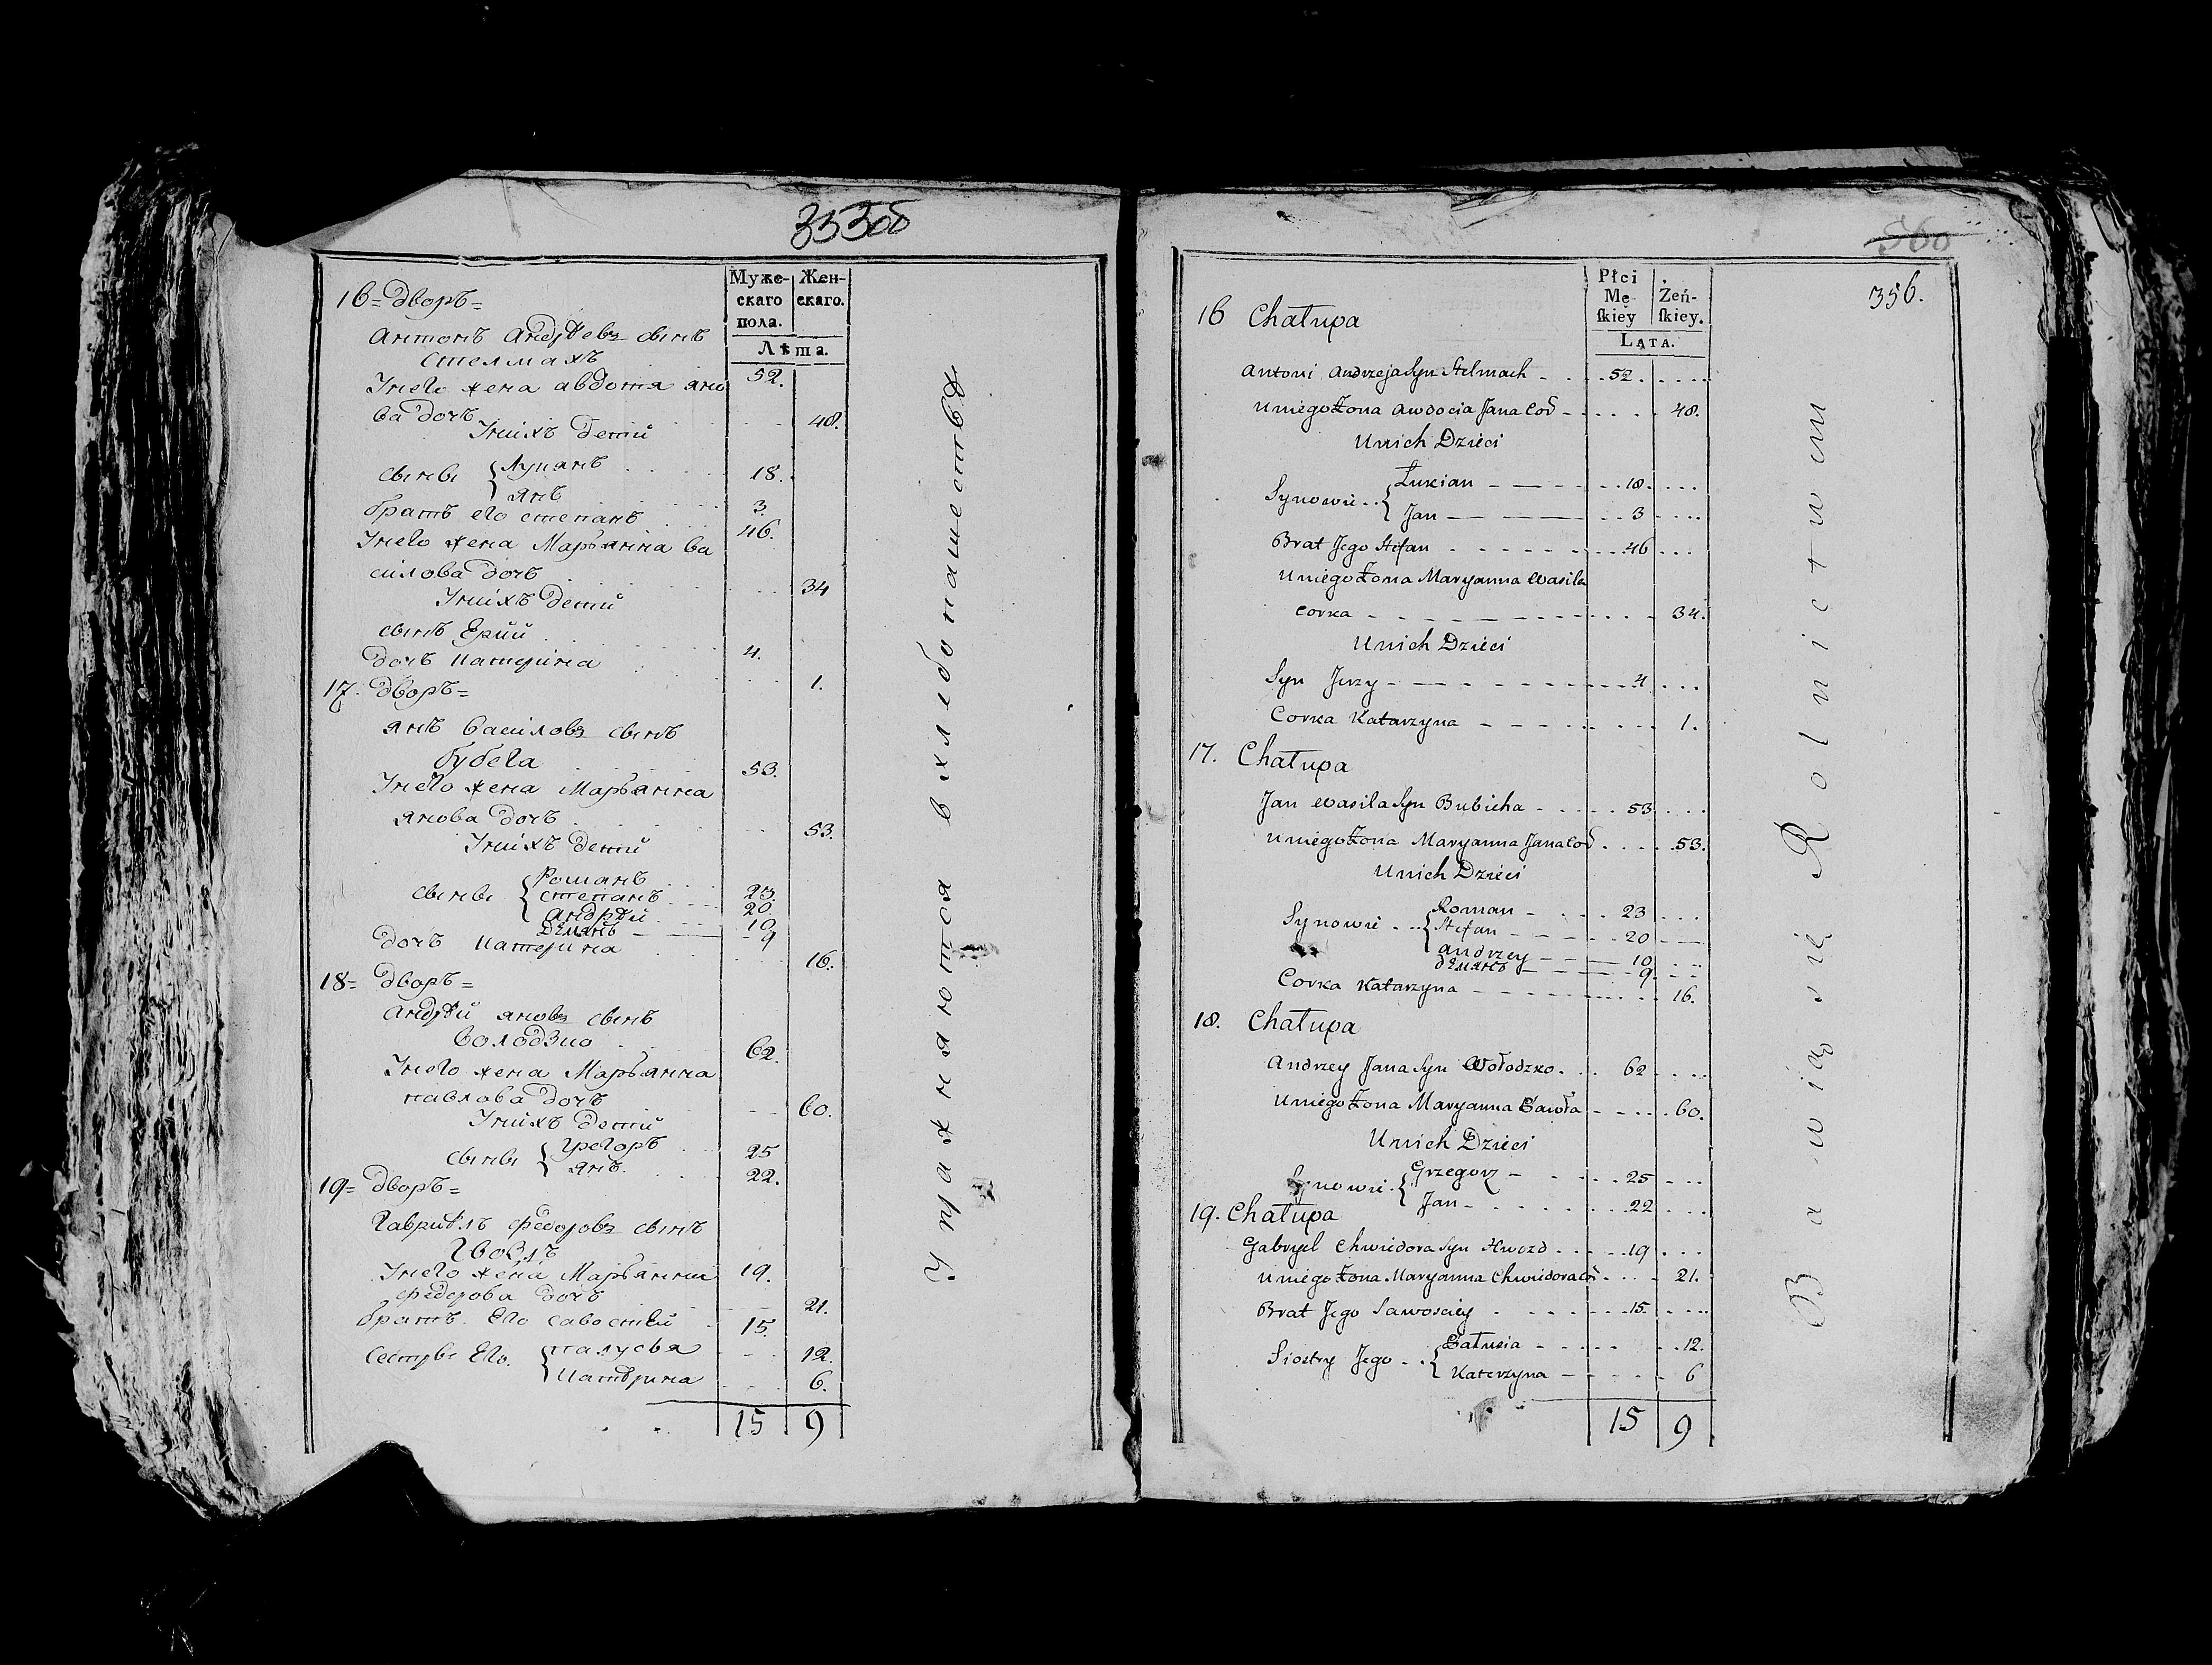 353об
Муже-
скаго
пола.
Жен-
скаго.
Лѣта.
16= Дворъ=
Антонъ Андрѣевъ сынъ
Стелмахъ 52.
Унего жена Авдотя яно
ва дочъ 48.
Унихъ Дети
сыны { Лукянъ 18.
янъ 3.
братъ его степанъ 46.
Унего жена Марьянна ва
силова дочъ 34
Унихъ дети
сынъ Ерий 4.
Дочъ катерина 1.
17. Дворъ=
янъ василовъ сынъ
бубега 53.
Унего жена Марьянна
янова дочъ 53.
Унихъ дети
сыны { Романъ 23.
степанъ 20.
Андрѣй 10
Дѣмянъ 9
Дочъ катерина 16.
18= Дворъ=
Андрѣй яновъ сынъ
володзко 62.
Унего жена Марьянна
павлова дочъ 60.
Унихъ дети
сыны { Грегоръ 25
янъ. 22.
19= Дворъ=
Гаврилъ федоровъ сынъ
Унего жена Марьянна 19.
федорова дочъ 21.
братъ Его савостей 15.
сестры Его. { палуся 12.
катерина 6.
15 9
Упражняются в хлебопашествѣ
560
356.
Płci
Mę
skiey
Żeń-
skiey.
LATA.
16 Chałupa
Antoni Andrzeja Syn Stelmach 52.
Uniego Żona Awdocia Jana Cor 48.
Unich Dzieci
Synowie { Łukian 18.
Jan 3
Brat Jego Stefan 46
Uniego Żona Maryanna Wasila
Corka 34.
Unich Dzieci
Syn Jerzy 4
Corka Katarzyna 1.
17. Chałupa
Jan Wasila Syn Bubicha 53
Uniego Żona Maryanna Jana Cor 53.
Unich Dzieci
Synowie { Roman 23
Stefan 20
Andrzey 10
Дѣмянъ 9
Corka Katarzyna 16.
18. Chałupa
Andrzey Jana Syn Wołodzko 62
Uniego Żona Maryanna Pawła 60.
Unich Dzieci
Synowie { Grzegorz 25
Jan 22
19. Chałupa
Gabryel Chwiedora Syn Hwozd 19
Uniego Żona Maryanna Chwiedora Cor 21.
Brat Jego Sawosciey 15.
Siostry Jego { Pałusia 12.
Katerzyna 6
15 9
Bawią się Rolnictwem